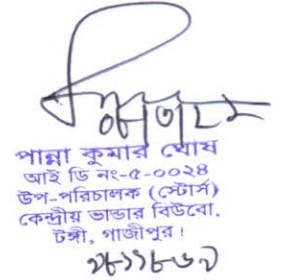 পান্না কুমার ঘোষ
আই ডি নং-৫-০০২৪
উপ-পরিচালক (স্টোর্স)
কেন্দ্রীয় ভান্ডার বিউবো.
টঙ্গী, গাজীপুর।